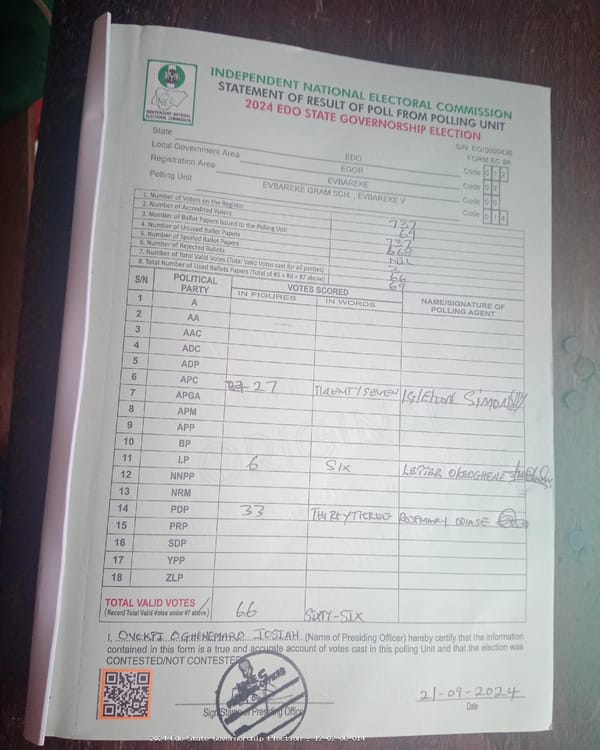 INDEPENDENT NATIONAL ELECTORAL COMMISSION
STATEMENT OF RESULT OF POLL FROM POLLING UNIT
2024 EDO STATE GOVERNORSHIP ELECTION
INDEPENDENT NATIONAL ELECTORAL COMMISSION
S/N EG/0000436
FORM EC 8A
State EDO Code 0 1 2
Local Government Area EGOR Code 0 2
Registration Area EVBAREKE Code 0 6
Polling Unit EVBAREKE GRAM SCH., EVBAREKE V Code 0 1 4
1. Number of Voters on the Register 737
2. Number of Accredited Voters 69
3. Number of Ballot Papers Issued to the Polling Unit 737
4. Number of Unused Ballot Papers 668
5. Number of Spoiled Ballot Papers NIL
6. Number of Rejected Ballots 3
7. Number of Total Valid Votes (Total Valid Votes cast for all parties) 66
8. Total Number of Used Ballots Papers (Total of #5 + #6 + #7 above) 69
S/N POLITICAL PARTY VOTES SCORED NAME/SIGNATURE OF POLLING AGENT
IN FIGURES IN WORDS
1 A
2 AA
3 AAC
4 ADC
5 ADP
6 APC 27 TWENTY SEVEN SIMON
7 APGA
8 APM
9 APP
10 BP
11 LP 6 SIX LETTER OKEOGHENE
12 NNPP
13 NRM
14 PDP 33 THIRTYTHREE ROSEMARY ODIASE
15 PRP
16 SDP
17 YPP
18 ZLP
TOTAL VALID VOTES 66 SIXTY-SIX
(Record Total Valid Votes under #7 above)
I, JOSIAH (Name of Presiding Officer) hereby certify that the information
contained in this form is a true and accurate account of votes cast in this polling Unit and that the election was
CONTESTED/NOT CONTESTED
21-09-2024
Sign Stamp of Presiding Officer Date
2024 Edo State Governorship Election : 12-02-06-014